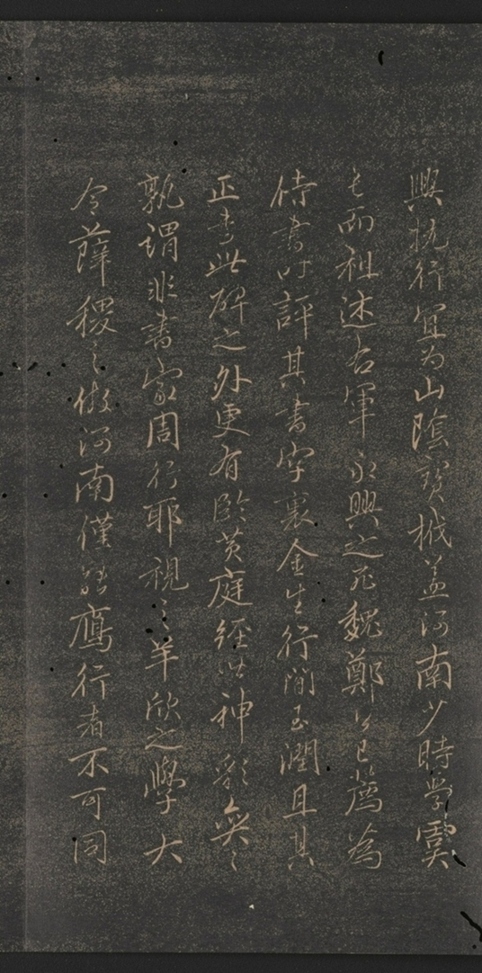 興執行宜為山陰賀樾蓋河南少時學虞
長而祖述右軍永興之死魏鄭公已薦為
侍書時評其書字裏金生行間玉潤且其
正書此碑之外更有臨黃庭經神彩奕〻
孰謂非書家周行耶視之羊欣之學大
令薛稷之傚河南僅能鴈行者不可同